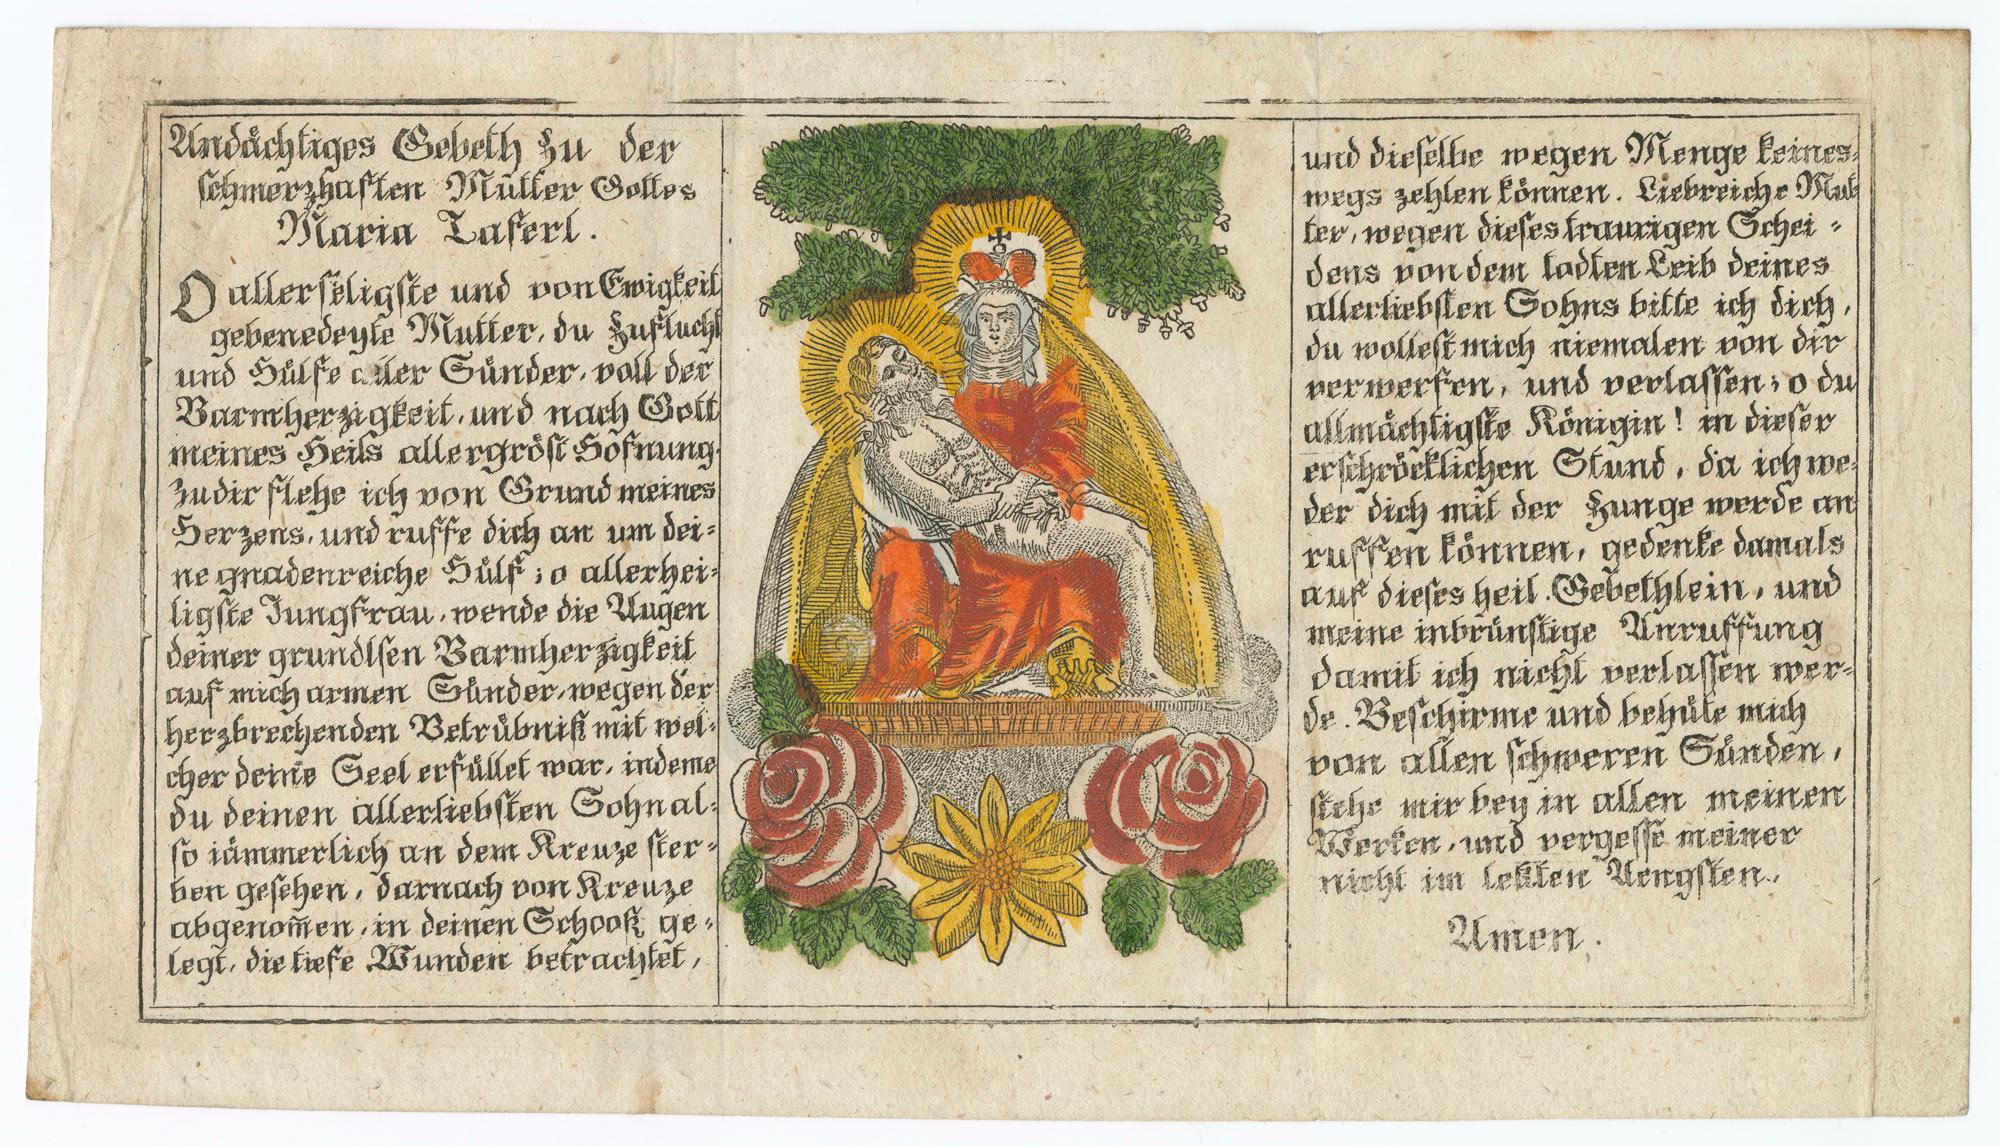 Andächtiges Gebeth Zu der
schmerzhaften Mutter Gottes
Maria Taferl.
O allerseligste und von Ewigkeit
gebenedeyte Mutter, du Zuflucht
und Hülfe aller Sünder, voll der
Barmherzigkeit, und nach Gott
meines Heils allergröst Hofnung,
Zu dir flehe ich von Grund meines
Herzens, und ruffe dich an um dei=
ne gnadenreiche Hülf; o allerhei=
ligste Jungfrau, wende die Augen
deiner grundlsen Barmherzigkeit
auf mich armen Sünder, wegen der
herzbrechenden Betrübniß mit wel=
cher deine Seel erfüllet war, indeme
du deinen allerliebsten Sohn al=
so jämmerlich an dem Kreuze ster=
ben gesehen, darnach von Kreuze
abgenom̄en, in deinen Schooß ge=
legt, die tiefe Wunden betrachtet,
und dieselbe wegen Menge keines=
wegs zehlen können. Liebreiche Mut=
ter, wegen dieses traurigen Schei=
dens von dem todten Leib deines
allerliebsten Sohns bitte ich dich,
du wollest mich niemalen von dir
verwerfen, und verlassen; o du
allmächtigste Königin! in dieser
erschröcklichen Stund, da ich we=
der dich mit der Zunge werde an
ruffen können, gedenke damals
auf dieses heil. Gebethlein, und
meine inbrünstige Anruffung
damit ich nicht verlassen wer=
de. Beschirme und behüte mich
von allen schweren Sünden,
stehe mir bey in allen meinen
Werken, und vergesse meiner
nicht im letzten Aengsten.
Amen.